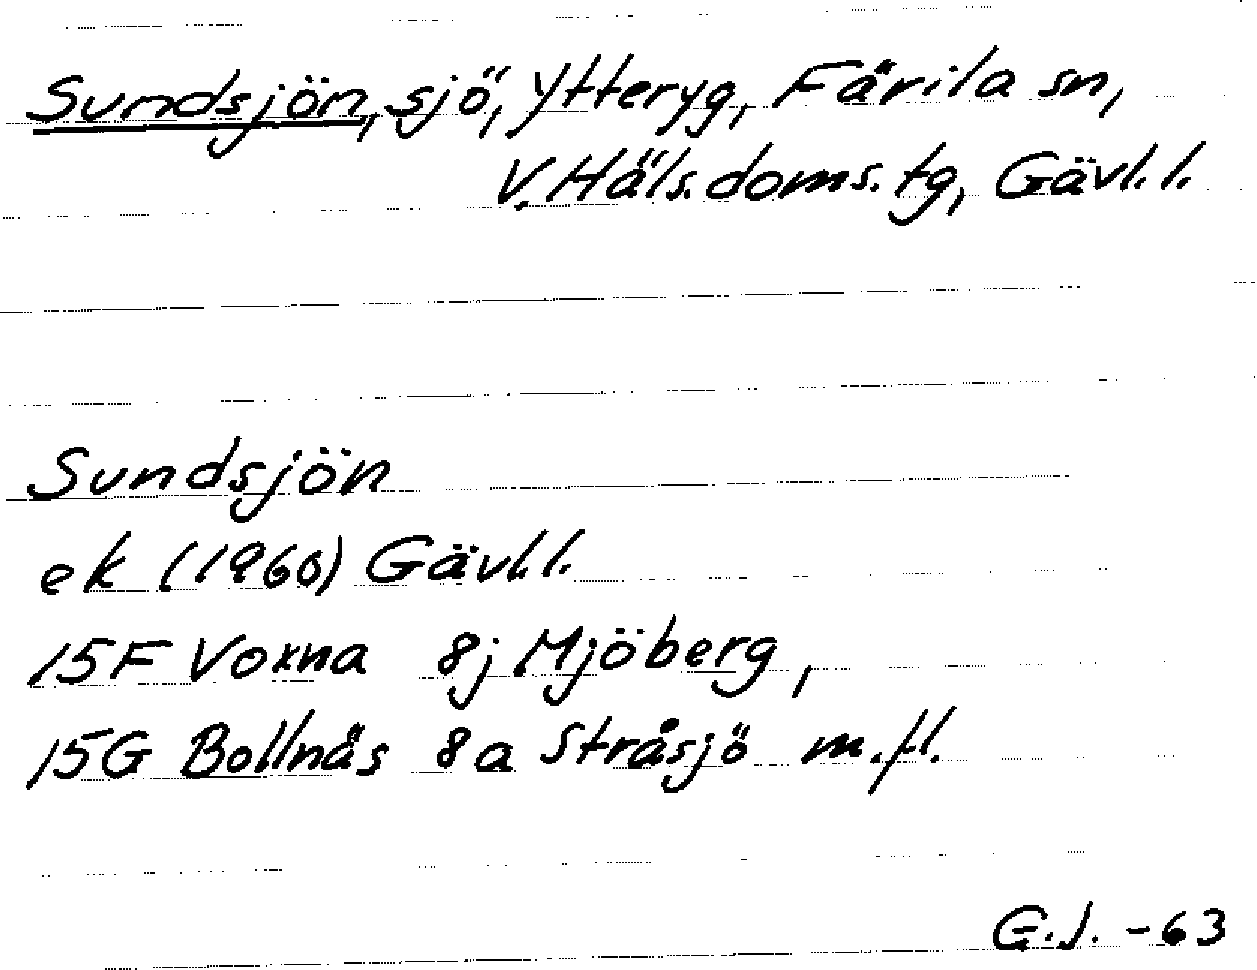 Sundsjön, sjö, Ytteryg, Färila sn,
V. Häls. doms. tg, Gävl. l.
Sundsjön
ek (1960) Gävl. l.
15F Voxna 8j Mjöberg,
15G Bollnäs 8a Stråsjö m.fl.
G.J. -63